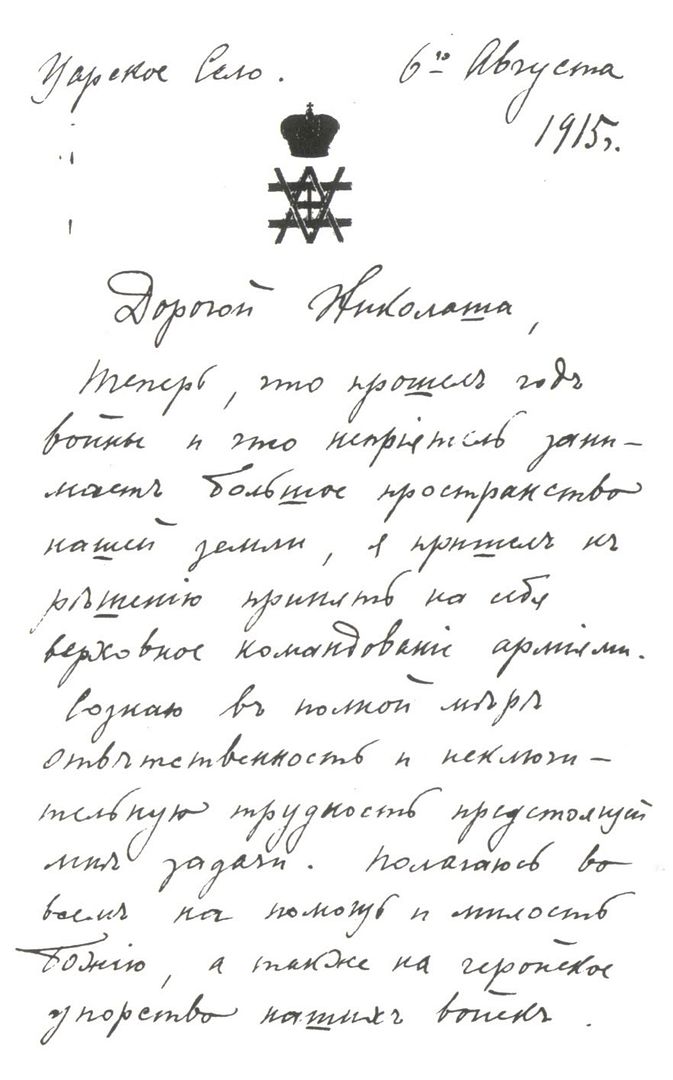 Царское Село. 6го Августа
1915г.
Дорогой Николаша,
Теперь, что прошелъ годъ
войны и что непріятель зани-
маетъ большое пространство
нашей земли, я пришелъ къ
рѣшенію принять на себя
верховное командованіе арміями.
Сознаю въ полной мѣрѣ
отвѣтственность и исключи-
тельную трудность предстоящей
мнѣ задачи. Полагаюсь во
всемъ на помощь и милость
Божію, а также на геройское
упорство нашихъ войскъ.